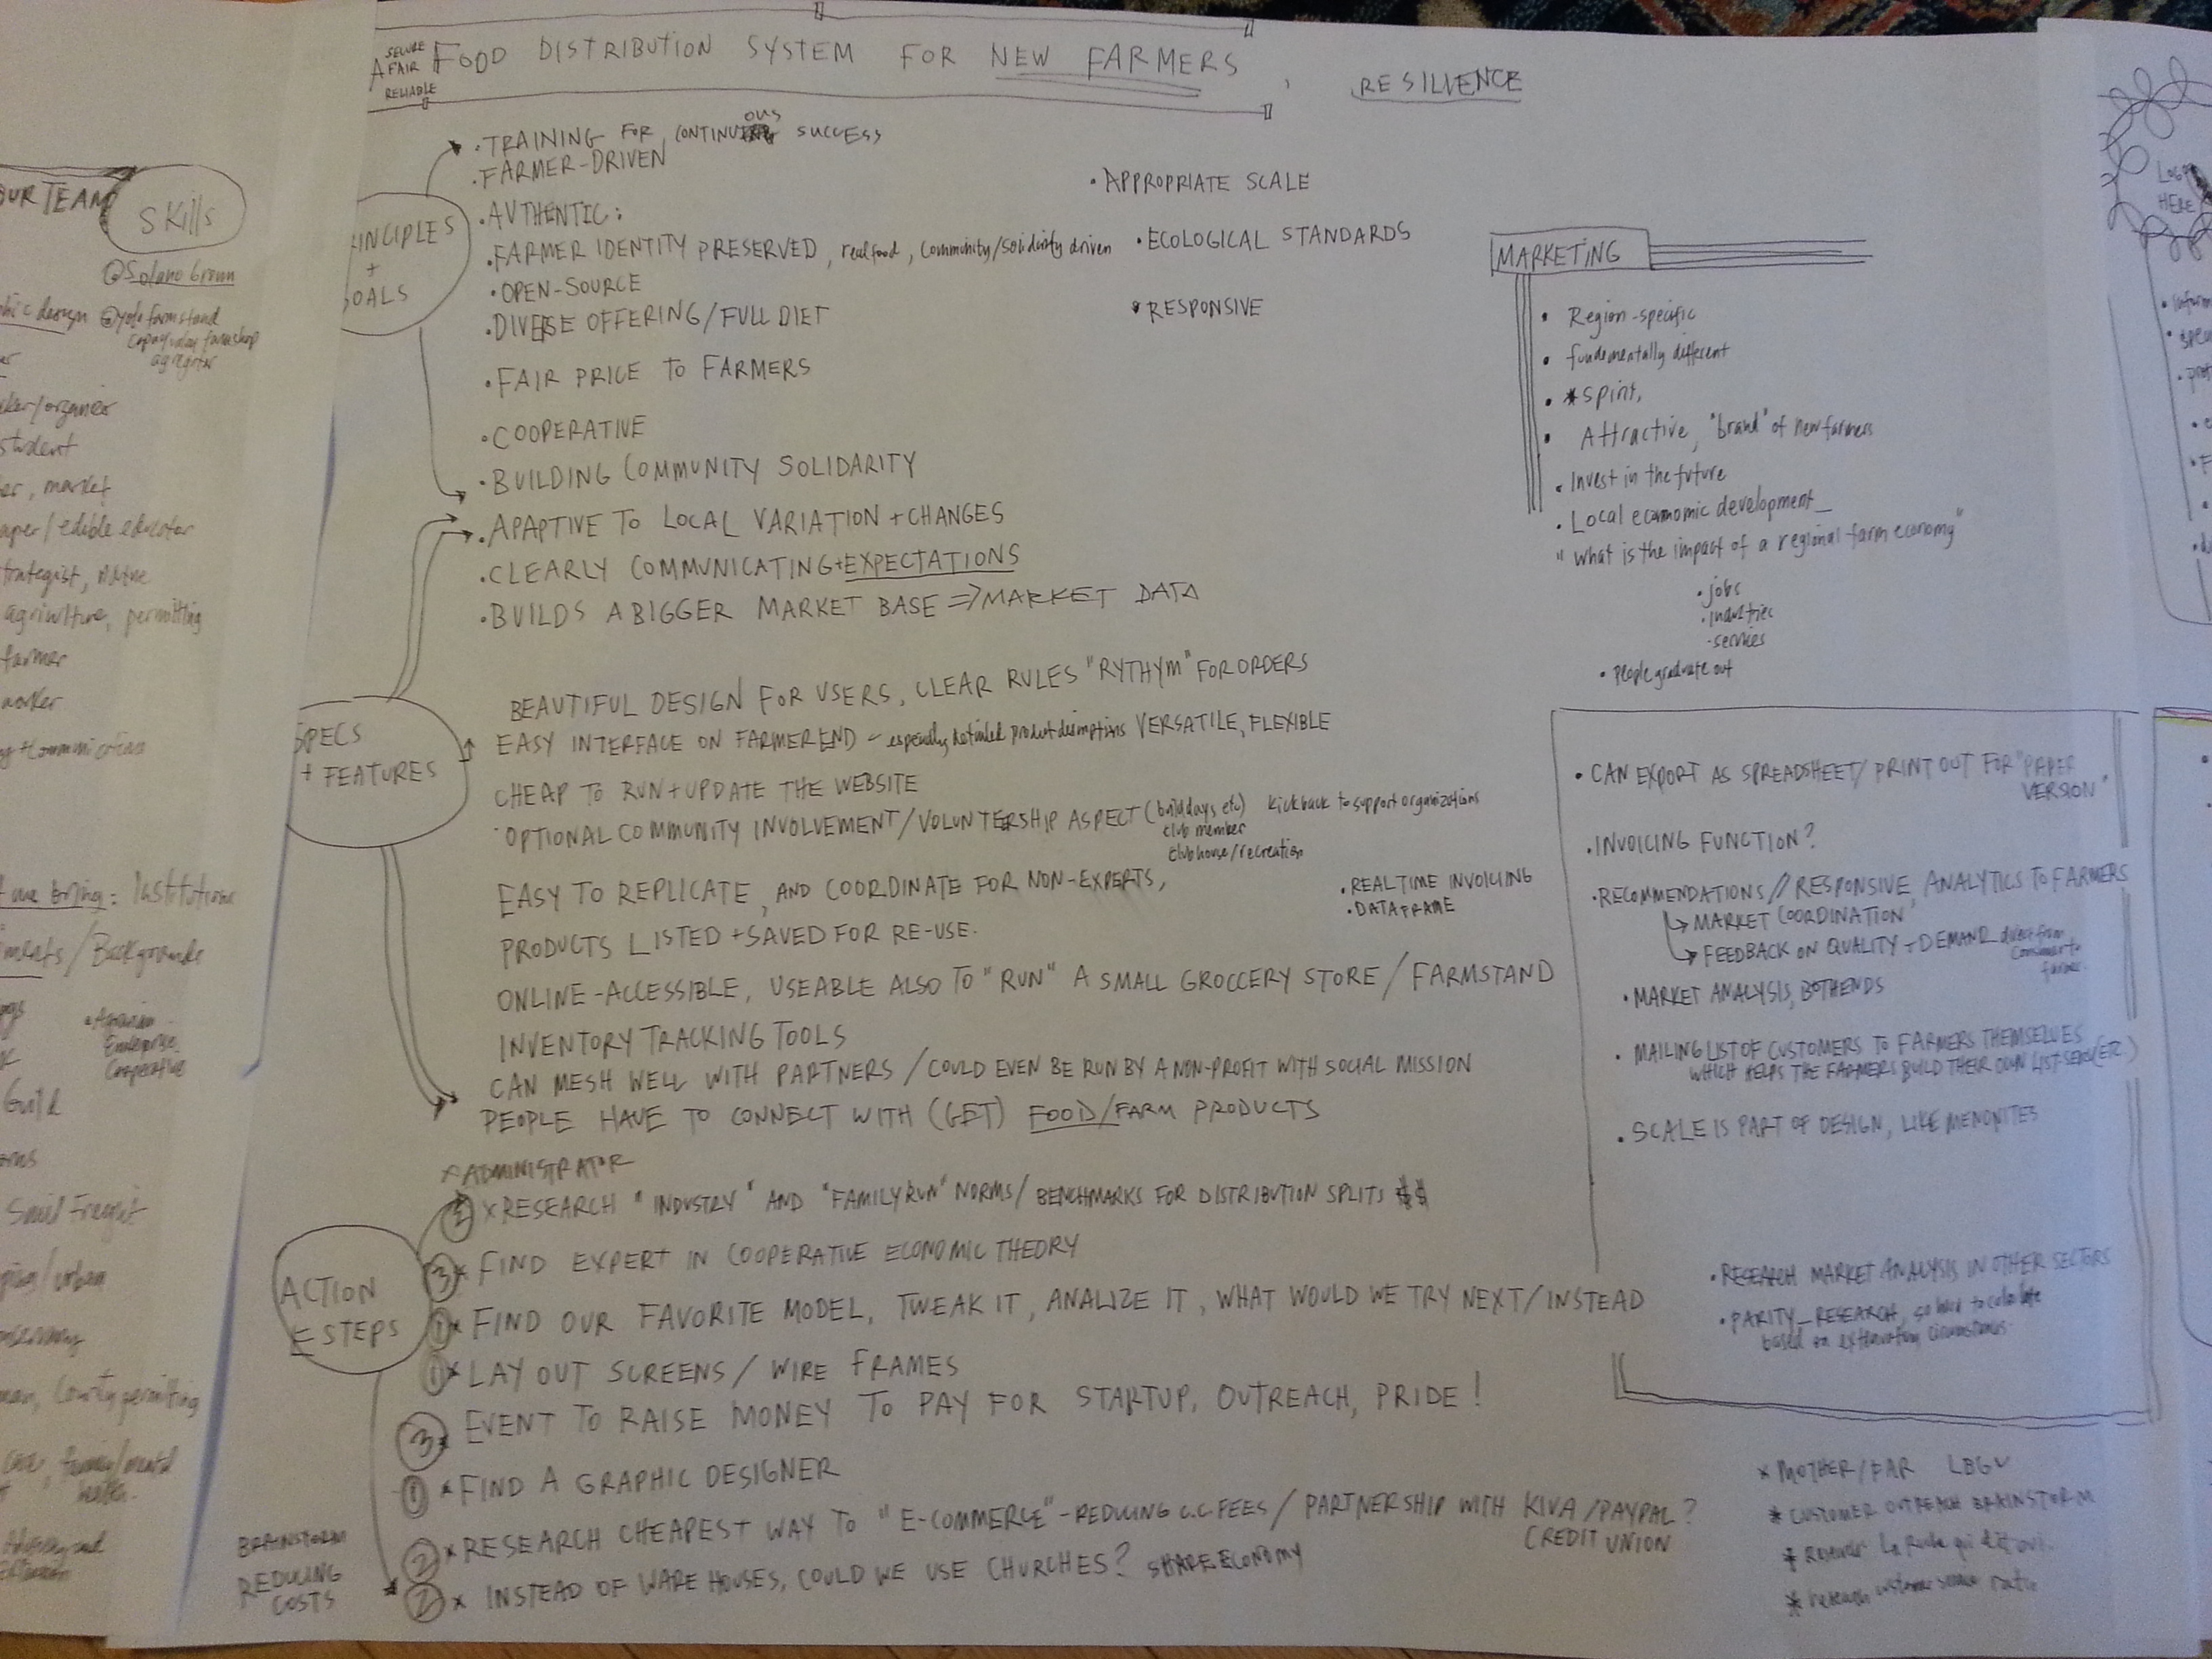 A SECURE FAIR RELIABLE FOOD DISTRIBUTION SYSTEM FOR NEW FARMERS, RESILIENCE
OUR TEAM
Skills
@Solano Grown
design @yolo farmstand
farmshop
student
market
/edible educator
permitting
farmer
worker
bring: Institutions
/ Backgrounds
Enterprise
Cooperative
Guild
Small Freight
/urban
County permitting
PRINCIPLES
+
GOALS
• TRAINING FOR CONTINUOUS SUCCESS
• FARMER-DRIVEN
• AUTHENTIC:
• FARMER IDENTITY PRESERVED, real food, community/solidarity driven
• OPEN-SOURCE
• DIVERSE OFFERING/FULL DIET
• FAIR PRICE TO FARMERS
• COOPERATIVE
• BUILDING COMMUNITY SOLIDARITY
• APAPTIVE TO LOCAL VARIATION + CHANGES
• CLEARLY COMMUNICATING + EXPECTATIONS
• BUILDS A BIGGER MARKET BASE => MARKET DATA
• APPROPRIATE SCALE
• ECOLOGICAL STANDARDS
• RESPONSIVE
SPECS
+ FEATURES
BEAUTIFUL DESIGN FOR USERS, CLEAR RULES "RYTHYM" FOR ORDERS
EASY INTERFACE ON FARMER END - especially detailed product descriptions VERSATILE, FLEXIBLE
CHEAP TO RUN + UPDATE THE WEBSITE
OPTIONAL COMMUNITY INVOLVEMENT/VOLUNTERSHIP ASPECT (build days etc) kickback to support organizations
club member
clubhouse/recreation
EASY TO REPLICATE, AND COORDINATE FOR NON-EXPERTS,
• REALTIME INVOICING
• DATAFRAME
PRODUCTS LISTED + SAVED FOR RE-USE.
ONLINE-ACCESSIBLE, USEABLE ALSO TO "RUN" A SMALL GROCCERY STORE / FARMSTAND
INVENTORY TRACKING TOOLS
CAN MESH WELL WITH PARTNERS / COULD EVEN BE RUN BY A NON-PROFIT WITH SOCIAL MISSION
PEOPLE HAVE TO CONNECT WITH (GET) FOOD/FARM PRODUCTS
ACTION
STEPS
x ADMINISTRATOR
x RESEARCH "INDUSTRY" AND "FAMILY RUN" NORMS/ BENCHMARKS FOR DISTRIBUTION SPLITS $$
3 x FIND EXPERT IN COOPERATIVE ECONOMIC THEORY
1 x FIND OUR FAVORITE MODEL, TWEAK IT, ANALIZE IT, WHAT WOULD WE TRY NEXT/INSTEAD
1 x LAY OUT SCREENS / WIRE FRAMES
3 x EVENT TO RAISE MONEY TO PAY FOR STARTUP, OUTREACH, PRIDE!
1 x FIND A GRAPHIC DESIGNER
2 x RESEARCH CHEAPEST WAY TO "E-COMMERCE" - REDUCING C.C FEES / PARTNERSHIP WITH KIVA/PAYPAL?
CREDIT UNION
2 x INSTEAD OF WAREHOUSES, COULD WE USE CHURCHES? SHARE ECONOMY
BRAINSTORM
REDUCING
COSTS
MARKETING
• Region-specific
• fundementally different
• * spirit,
• Attractive, "brand" of new farmers
• Invest in the future
• Local economic development_
"What is the impact of a regional farm economy"
• jobs
• industries
- services
• People graduate out
• CAN EXPORT AS SPREADSHEET/ PRINT OUT FOR "PAPER
VERSION"
• INVOICING FUNCTION?
• RECOMMENDATIONS // RESPONSIVE, ANALYTICS TO FARMERS
↳ MARKET COORDINATION
↳ FEEDBACK ON QUALITY + DEMAND direct from
consumer to
farmer.
• MARKET ANALYSIS, BOTH ENDS
• MAILING LIST OF CUSTOMERS TO FARMERS THEMSELVES
WHICH HELPS THE FARMERS BUILD THEIR OWN LIST-SERV (ETC.)
• SCALE IS PART OF DESIGN, LIKE MENONITES
• RESEARCH MARKET ANALYSIS IN OTHER SECTORS
• PARITY_RESEARCH, so hard to calculate
based on circumstances
* MOTHER/FAR
* CUSTOMER OUTREACH BRAINSTORM
* Research La Ruche qui dit oui.
* research customer service
LOGO
HERE